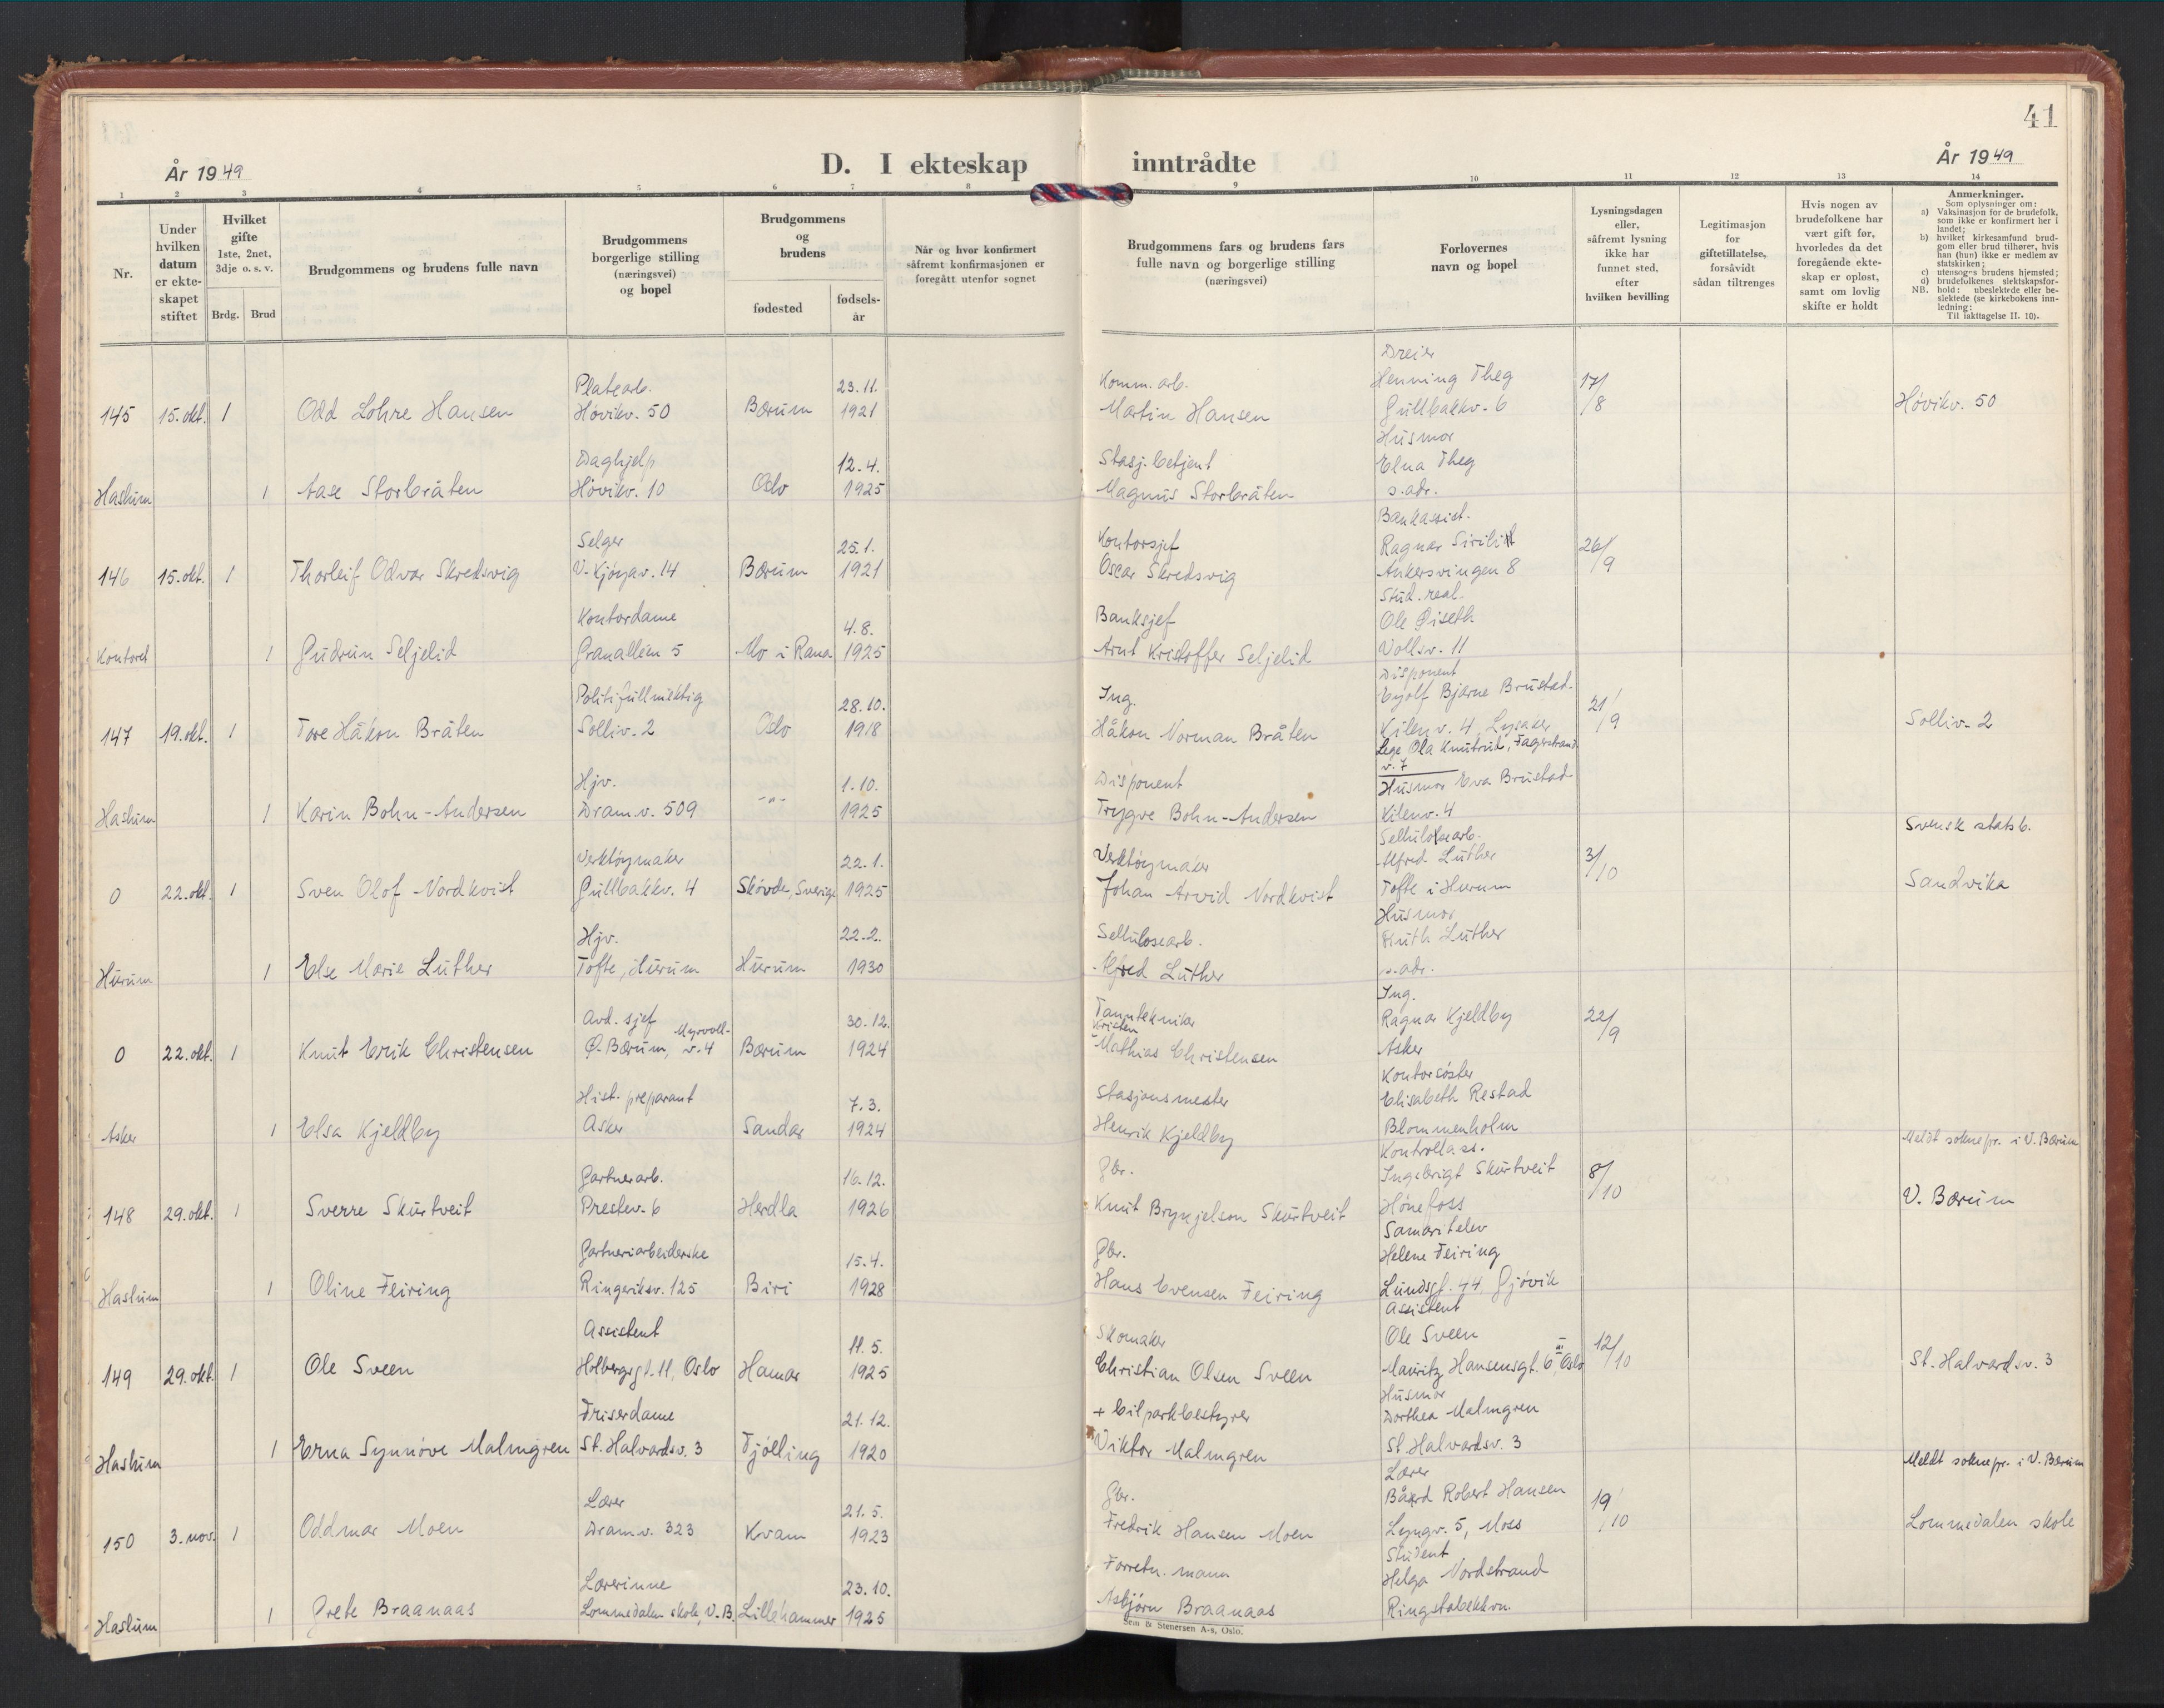 41
År 1949
D. I ekteskap inntrådte
År 1949
1 2 3 4 5 6 7 8 9 10 11 12 13 14
Nr.
Under hvilken datum er ekte- skapet stiftet
Hvilket gifte 1ste, 2net, 3dje o. s. v.
Brdg. Brud
Brudgommens og brudens fulle navn
Brudgommens borgerlige stilling (næringsvei) og bopel
Brudgommens og brudens
fødested
fødsels- år
Når og hvor konfirmert såfremt konfirmasjonen er foregått utenfor sognet
Brudgommens fars og brudens fars fulle navn og borgerlige stilling (næringsvei)
Forlovernes navn og bopel
Lysningsdagen eller, såfremt lysning ikke har funnet sted, efter hvilken bevilling
Legitimasjon for giftetillatelse, forsåvidt sådan tiltrenges
Hvis nogen av brudefolkene har vært gift før, hvorledes da det foregående ekte- skap er opløst, samt om lovlig skifte er holdt
Anmerkninger.
Som oplysninger om:
a) Vaksinasjon for de brudefolk, som ikke er konfirmert her i landet;
b) hvilket kirkesamfund brud- gom eller brud tilhører, hvis han (hun) ikke er medlem av statskirken;
c) utensogns brudens hjemsted;
d) brudefolkenes slektskapsfor- hold: ubeslektede eller be- slektede (se kirkebokens inn- ledning:
NB. Til iakttagelse II. 10).
Platearb. 23.11. Komm. arb. Dreier Henning Theg 17/8
145 15. okt. 1 Odd Lohre Hansen Høvikv. 50 Bærum 1921 Martin Hansen Gullbakkv. 6 Høvikv. 50
Daghjelp 12.4. Stasj. betjent Husmor Elna Theg
Haslum 1 Aase Storbråten Høvikv. 10 Oslo 1925 Magnus Storbråten s. adr.
Selger 25.1. Kontorsjef Bankassist. Ragnar 26/9
146 15. okt. 1 Thorleif Odvar Skredsvig 14 Bærum 1921 Oscar Skredsvig Ankersvingen 8
Kontordame 4.8. Banksjef Stud. real. Ole Øiseth
Kontoret 1 Gudrun Seljelid Granalléen 5 Mo i Rana 1925 Arnt Kristoffer Seljelid Vollsv. 11
Politifullmektig 28.10. Ing. Disponent Eyolf Bjarne Brustad 21/9
147 19. okt. 1 Tore Håkon Bråten Solliv. 2 Oslo 1918 Håkon Norman Bråten Kilenv. 4, Lysaker Solliv. 2
Lege Ola Knutrud, Fagerstrand v. 7
Hjv. 1.10. Disponent Husmor Eva Brustad
Haslum 1 Karin Bohn-Andersen Dram.v. 509 -"- 1925 Trygve Bohn-Andersen Kilenv. 4
Svensk statsb.
Verktøymaker 22.1. Verktøymaker Sellulosearb. Alfred Luther 3/10
0 22. okt. 1 Sven Olof Nordkvist Gullbakkv. 4 Skövde, Sverige 1925 Johan Arvid Nordkvist Tofte i Hurum Sandvika
Hjv. 22.2. Sellulosearb. Husmor Ruth Luther
Hurum 1 Else Marie Luther Tofte, Hurum Hurum 1930 Alfred Luther s. adr.
Avd. sjef 30.12. Tanntekniker Ing. Ragnar Kjeldby 22/9
0 22. okt. 1 Knut Erik Christensen Ø. Bærum, Myrvoll- v. 4 Bærum 1924 Kristen Mathias Christensen Asker
Hist. preparant 7.3. Stasjonsmester Kontorsøster Elisabeth Restad
Asker 1 Elsa Kjeldby Asker Sandar 1924 Henrik Kjeldby Blommenholm
Meldt soknepr. i V. Bærum
Gartnerarb. 16.12. Gbr. Kontrollass. Ingebrigt Skurtveit 8/10
148 29. okt. 1 Sverre Skurtveit Prestev. 6 Herdla 1926 Knut Brynjelson Skurtveit Hønefoss V. Bærum
Gartneriarbeiderske 15.4. Gbr. Samaritelev Helene Feiring
Haslum 1 Oline Feiring Ringeriksv. 125 Biri 1928 Hans Evensen Feiring Lundsgt. 44, Gjøvik
Assistent 11.5. Skomaker Assistent Ole Sveen 12/10
149 29. okt. 1 Ole Sveen Holbergsgt. 11, Oslo Hamar 1925 Christian Olsen Sveen Mauritz Hansensgt. 6 III, Oslo St. Halvardsv. 3
Friserdame 21.12. + bilparkbestyrer Husmor Dorthea Malmgren
Haslum 1 Erna Synnøve Malmgren St. Halvardsv. 3 Tjølling 1920 Viktor Malmgren St. Halvardsv. 3
Meldt soknepr. i V. Bærum
Lærer 21.5. Gbr. Lærer Bård Robert Hansen 19/10
150 3. nov. 1 Oddmar Moen Dram.v. 323 Kvam 1923 Fredrik Hansen Moen Lyngv. 5, Moss Lommedalen skole
Lærerinne 23.10. Forretn. mann Student Helga Nordstrand
Haslum 1 Grete Braanaas Lommedalen skole, V.B. Lillehammer 1925 Asbjørn Braanaas Ringstabekkvn.
Sem & Stenersen A-s, Oslo.